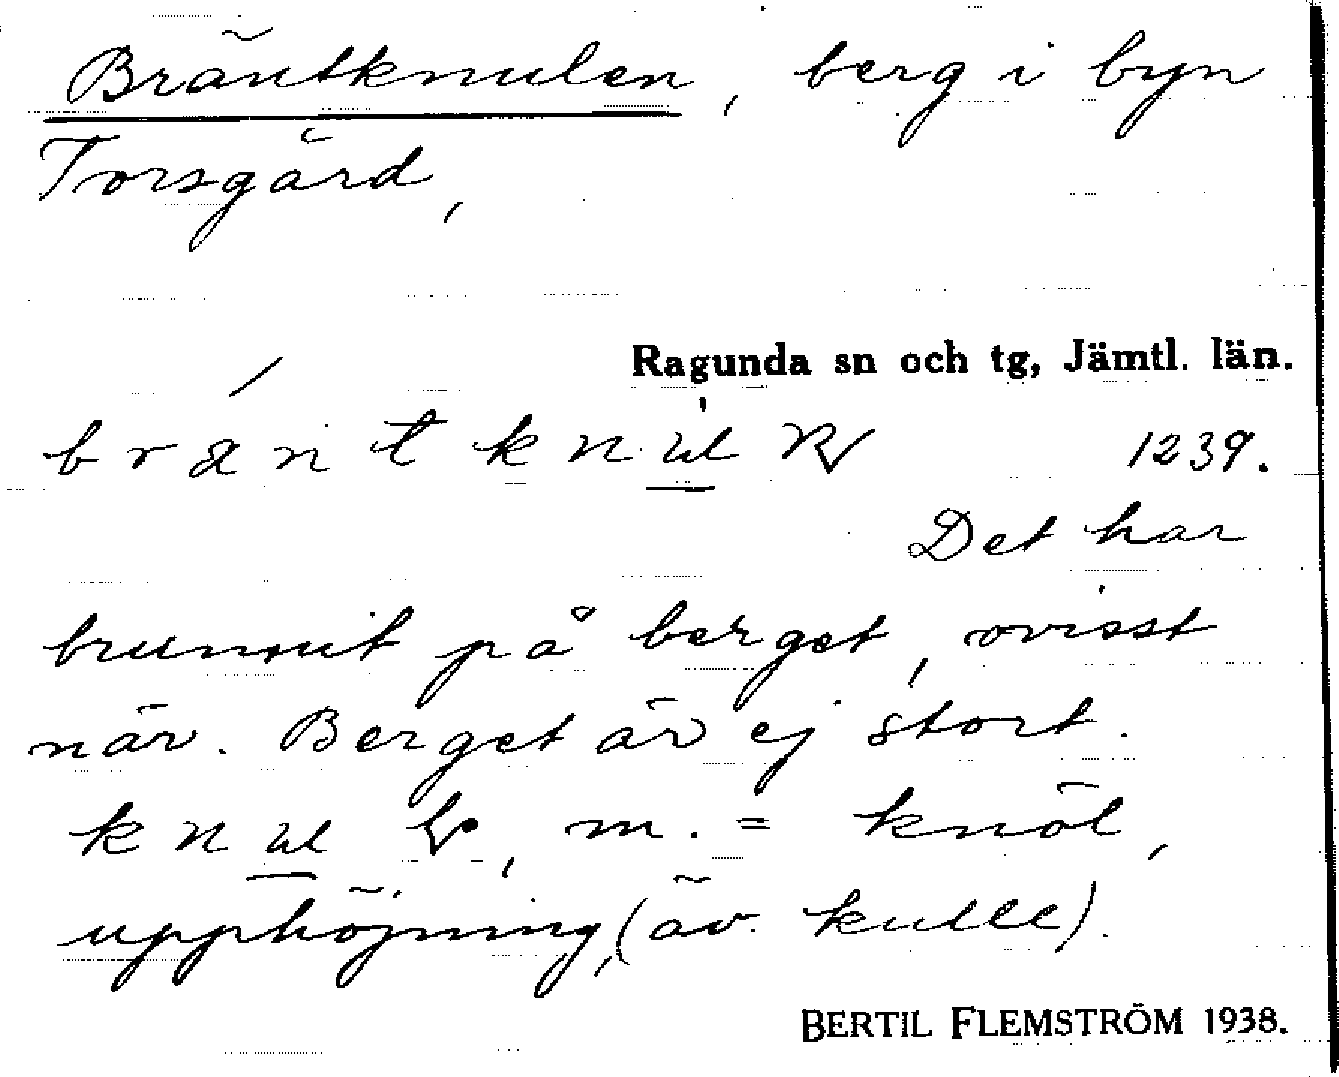 Bräntknulen, berg i byn
Torsgård,
Ragunda sn och tg, Jämtl. län.
1239.
Det har
brunnit på berget, ovisst
när. Berget är ej stort.
m. = knöl,
upphöjning, (äv. kulle).
BERTIL FLEMSTRÖM 1938.